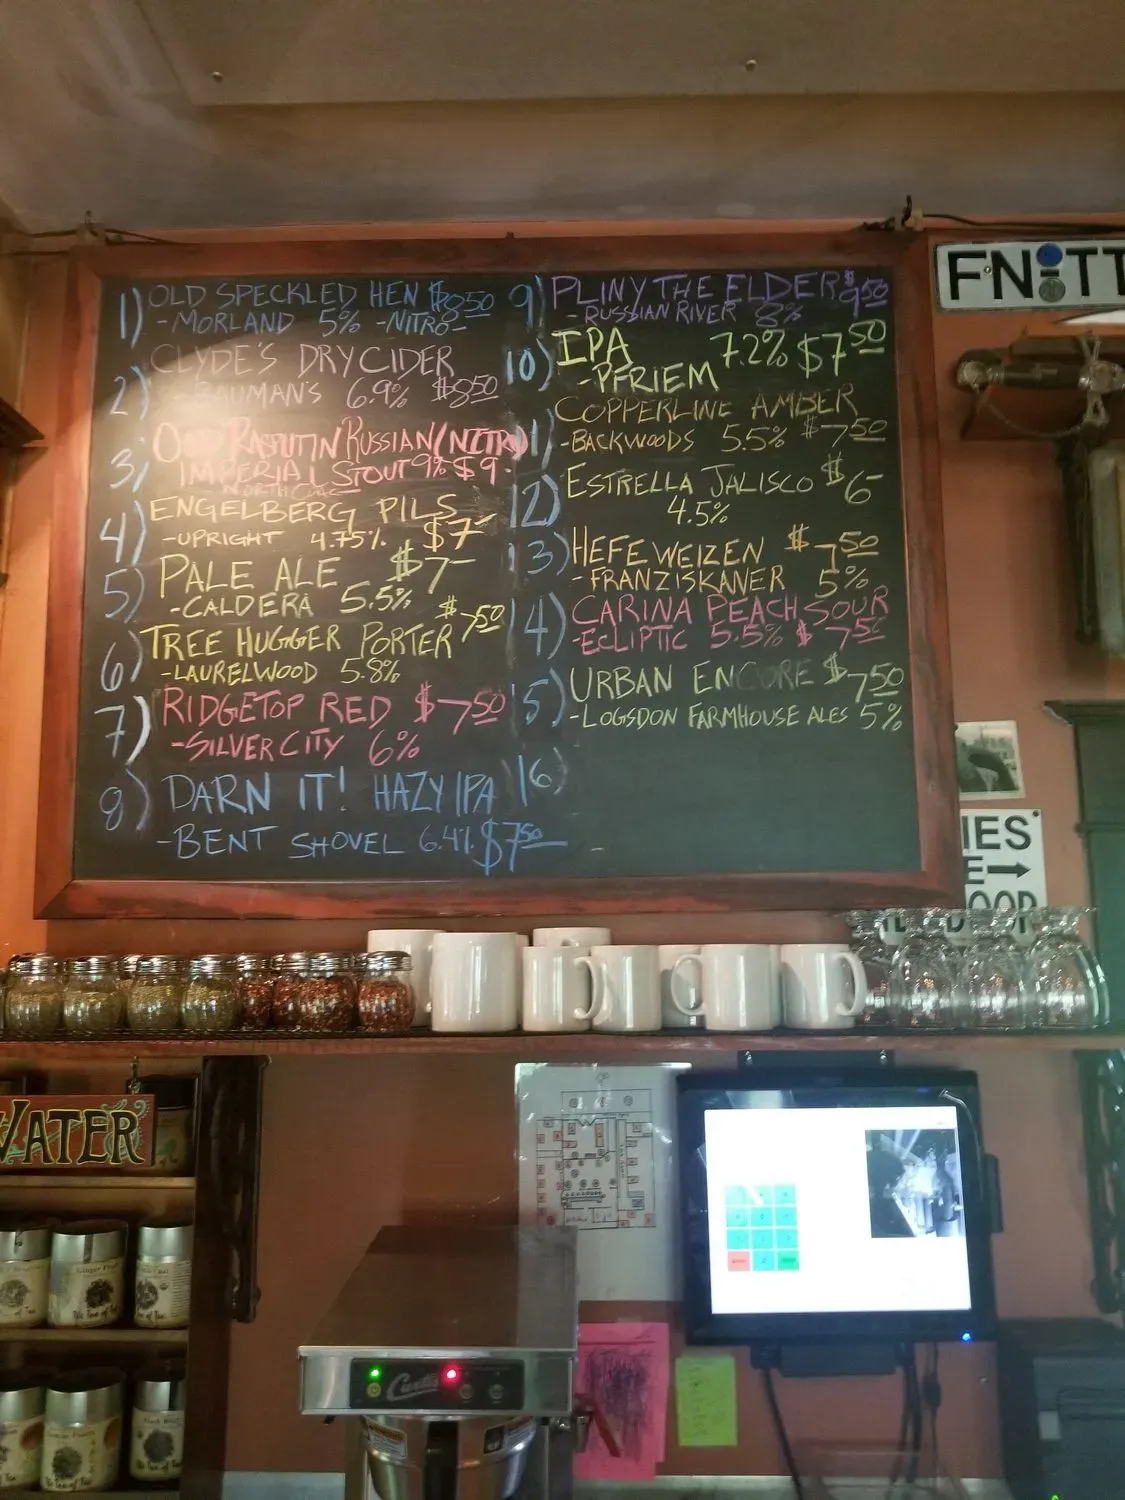 1) OLD SPECKLED HEN $850
-MORLAND 5% -NITRO-
2) CLYDE'S DRY CIDER
-BAUMAN'S 6.9% $850
3) OLD RASPUTIN RUSSIAN (NITRO)
IMPERIAL STOUT 9% $9-
NORTH COAST
4) ENGELBERG PILS
-UPRIGHT 4.75% $7-
5) PALE ALE $7-
-CALDERA 5.5%
6) TREE HUGGER PORTER $750
-LAURELWOOD 5.8%
7) RIDGETOP RED $750
-SILVER CITY 6%
8) DARN IT! HAZY IPA
-BENT SHOVEL 6.4% $750
9) PLINY THE ELDER $950
-RUSSIAN RIVER 8%
10) IPA 7.2% $750
-PFRIEM
11) COPPERLINE AMBER
-BACKWOODS 5.5% $750
12) ESTRELLA JALISCO $6-
4.5%
13) HEFEWEIZEN $750
-FRANZISKANER 5%
14) CARINA PEACH SOUR
-ECLIPTIC 5.5% $750
15) URBAN ENCORE $750
-LOGSDON FARMHOUSE ALES 5%
16)
FN TT
IES
E →
OOR
WATER
Ginger Peach
The Tao of Tea
The Tao of Tea
Curtis